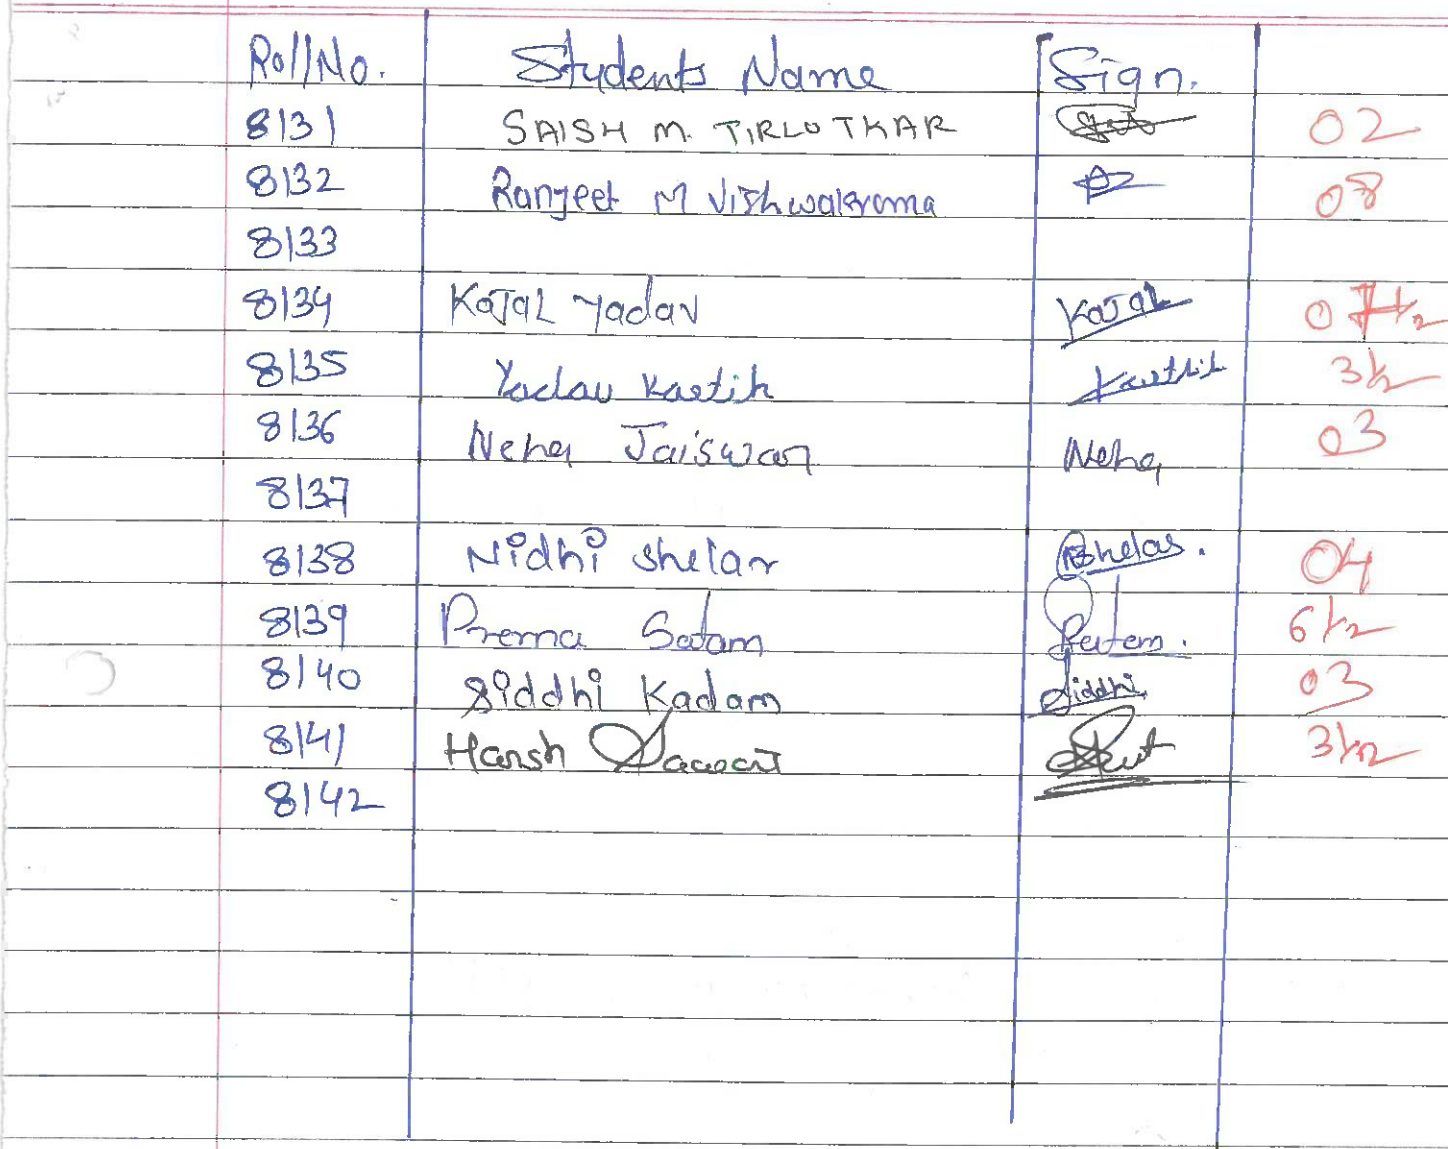 Roll No. Students Name Sign.
8131 SAISH M. TIRLOTKAR 02
8132 Ranjeet M Vishwakroma 08
8133
8134 KaJaL Yadav KaJaL 07 1/2
8135 Yadav Kartik Karthik 3 1/2
8136 Neha Jaiswar Neha 03
8137
8138 Nidhi Shelar Shelar. 04
8139 Prerna Satam Satam. 6 1/2
8140 Siddhi Kadam Siddhi 03
8141 Harsh Sawant 3 1/2
8142